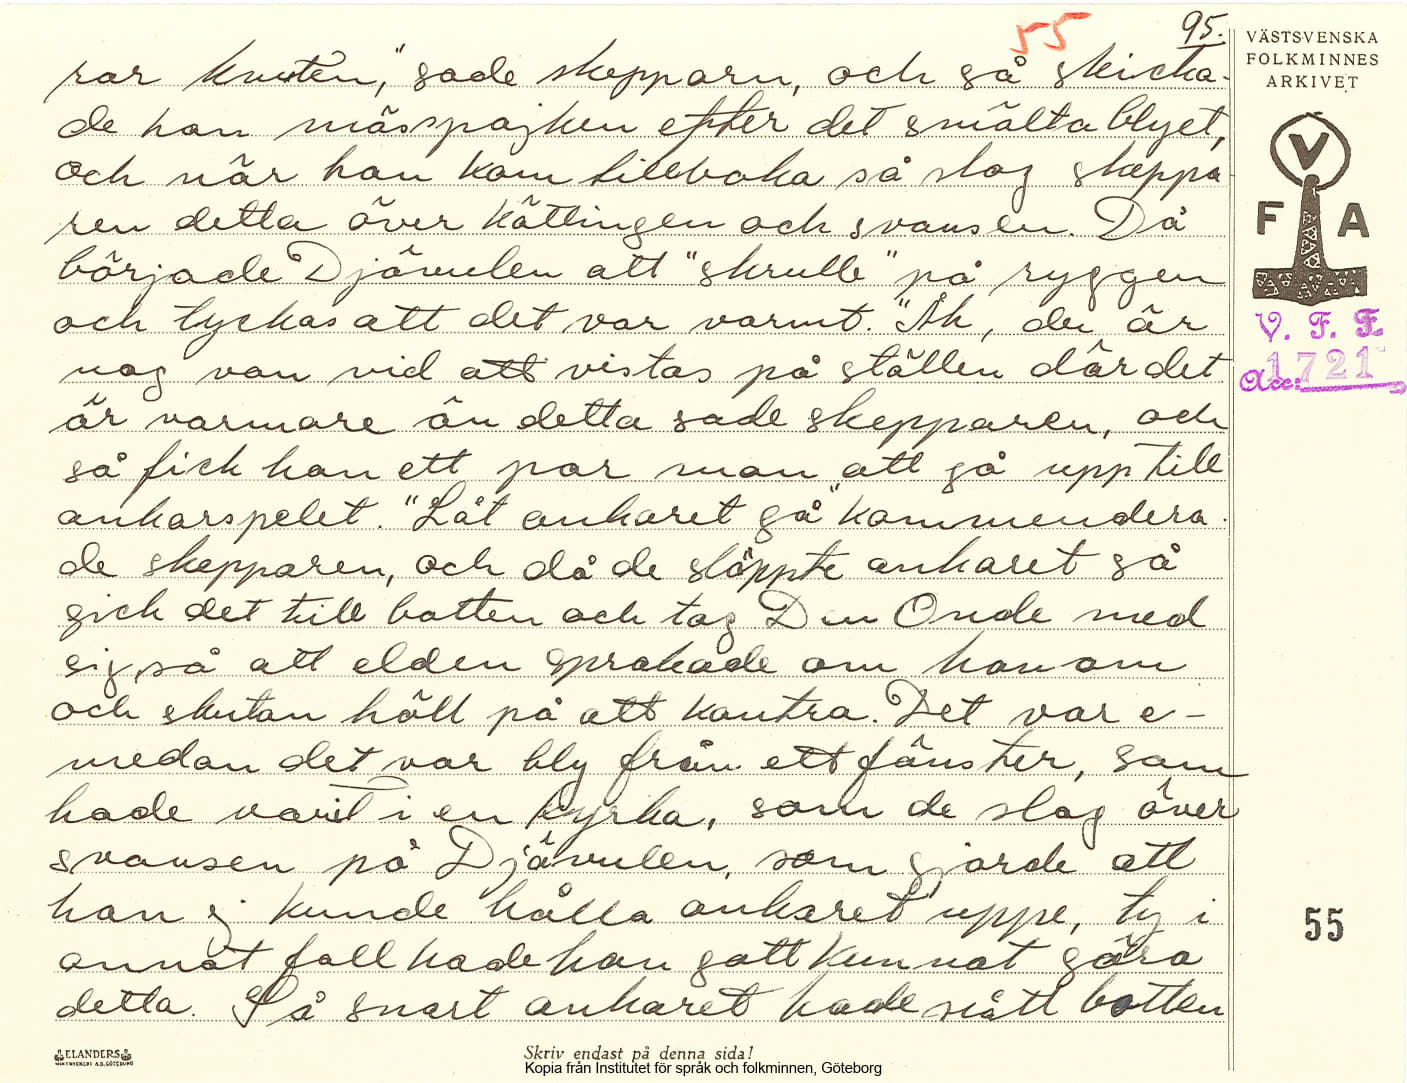 95.
55
rar knuten," sade skepparn, och så skicka-
de han mässpojken efter det smälta blyet,
och när han kom tillboka så slog skeppa
ren detta över kättingen och svansen. Då
började Djävulen att "skrulle" på ryggen
och tyckas att det var varmt. "Åh, du är
nog van vid att vistas på ställen där det
är varmare än detta sade skepparen, och
så fick han ett par man att gå upp till
ankarspelet. "Låt ankaret gå" kommendera
de skepparen, och då de släppte ankaret så
gick det till botten och tog Den Onde med
sig, så att elden sprakade om honom
och skutan höll på att kantra. Det var e-
medan det var bly från ett fänster, som
hade varit i en kyrka, som de slog över
svansen på Djävulen, som gjorde att
han ej kunde hålla ankaret uppe, ty i
annat fall hade han gott kunnat göra
detta. Så snart ankaret hade nått botten
VÄSTSVENSKA
FOLKMINNES
ARKIVET
V
F A
V. F. F.
Acc: 1721
55
ELANDERS
Skriv endast på denna sida!
Kopia från Institutet för språk och folkminnen, Göteborg